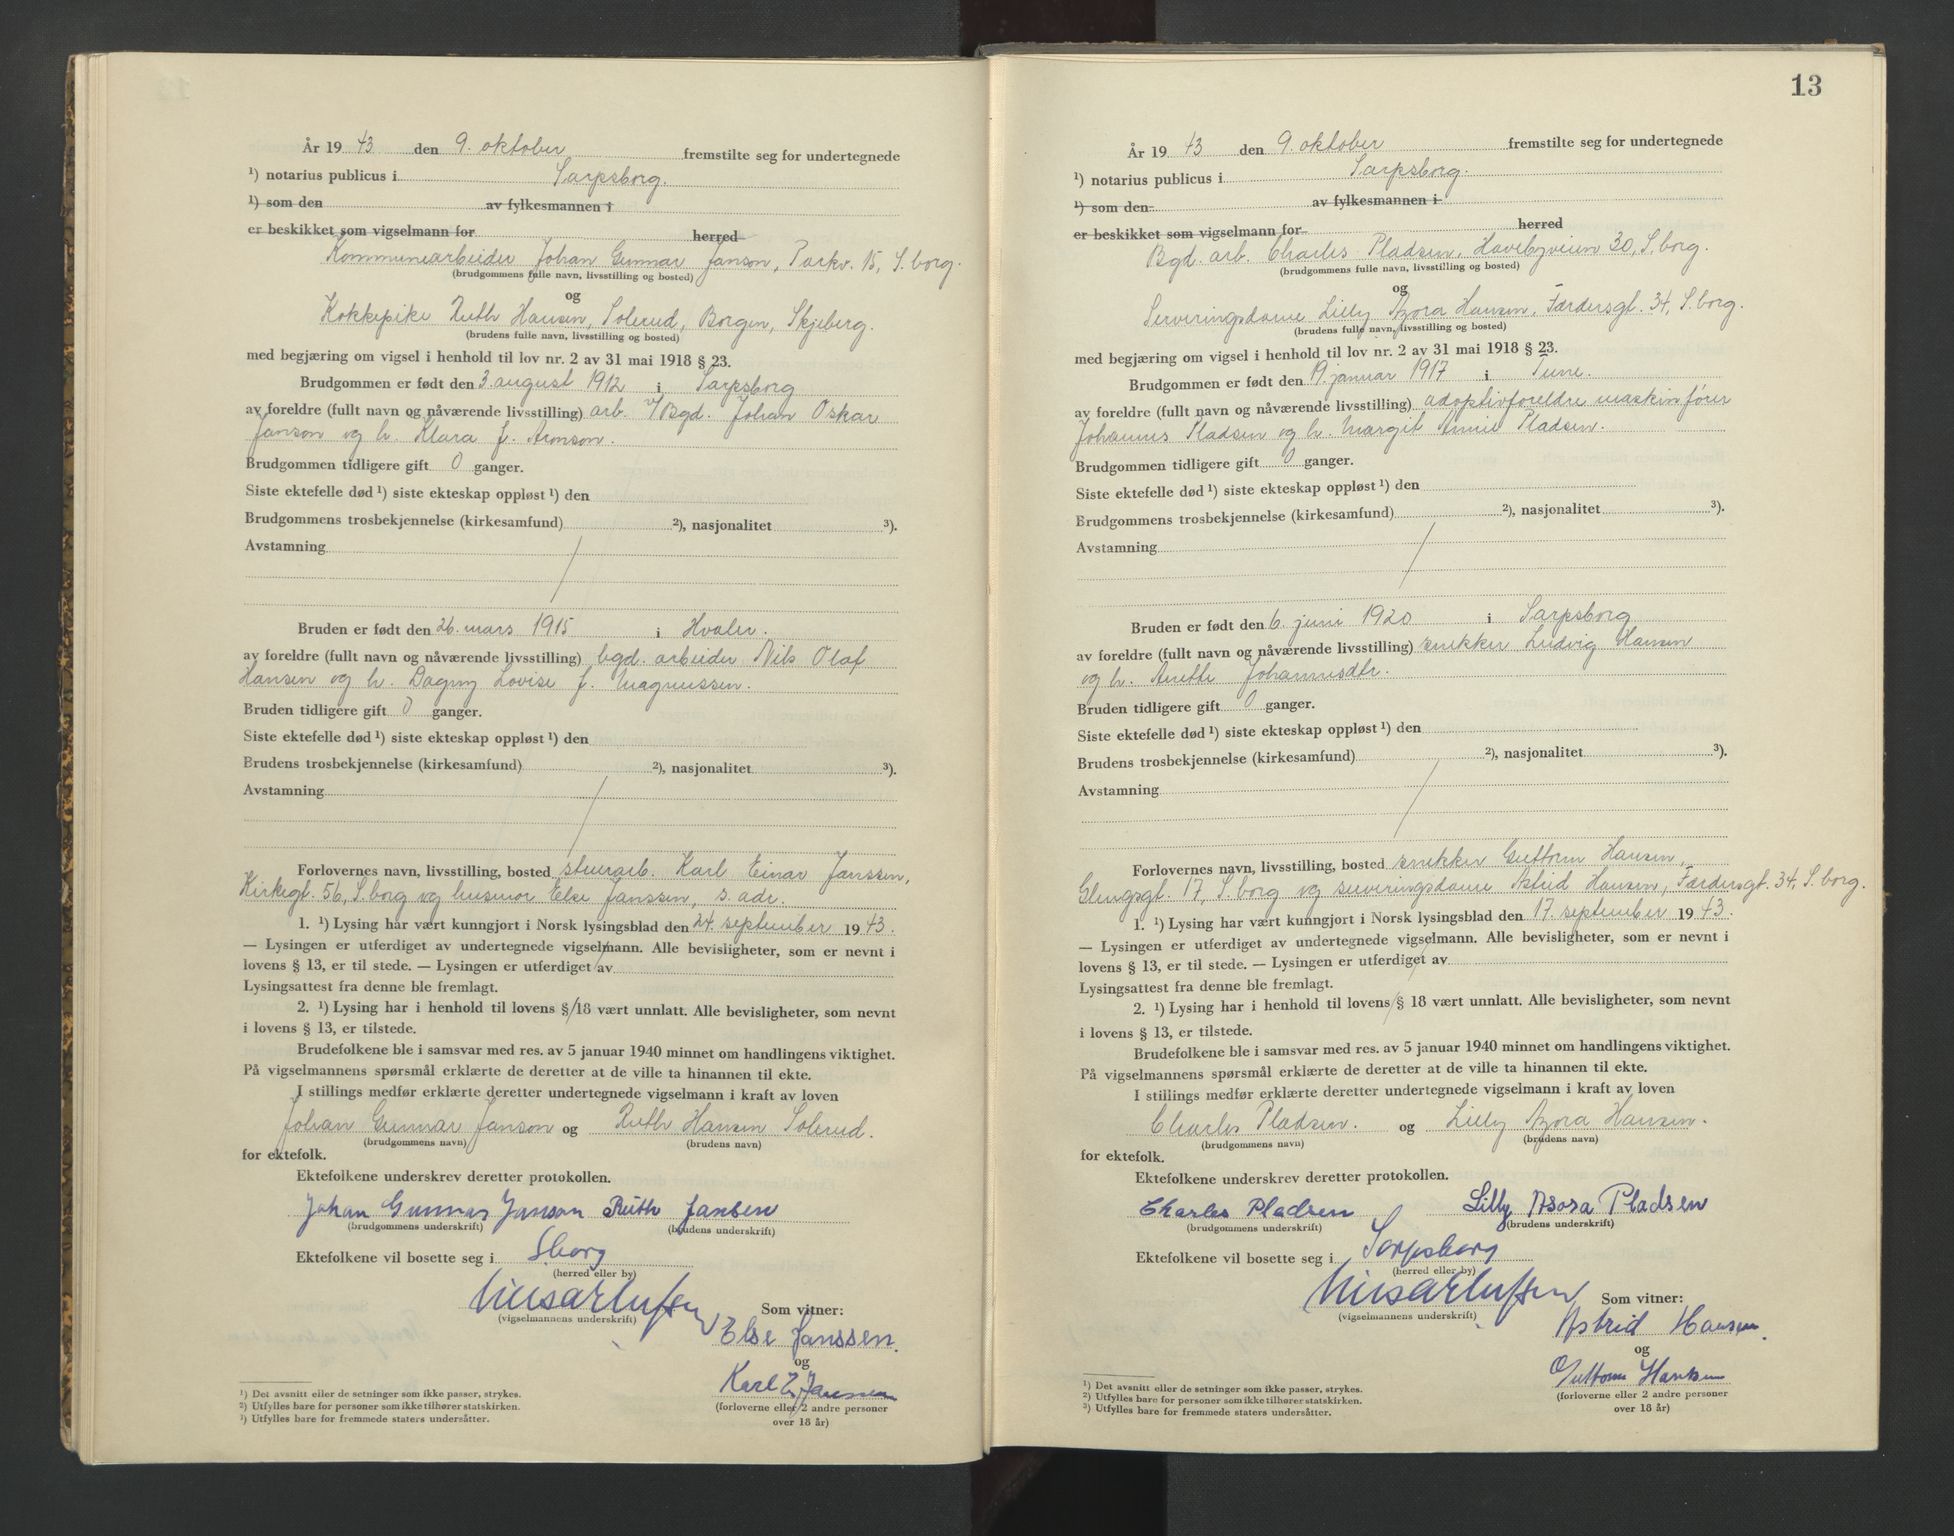 År 19 43 den 9. oktober fremstilte seg for undertegnede
¹) notarius publicus i Sarpsborg.
¹) som den av fylkesmannen i
er beskikket som vigselmann for herred
Kommunearbeider Johan Gunnar Janson, Parkv. 15, S.borg.
(brudgommens fulle navn, livsstilling og bosted)
og
Kokkepike Ruth Hansen, Solerud, Borgen, Skjeberg.
(brudens fulle navn, livsstilling og bosted)
med begjæring om vigsel i henhold til lov nr. 2 av 31 mai 1918 § 23.
Brudgommen er født den 3. august 1912 i Sarpsborg
av foreldre (fullt navn og nåværende livsstilling) arb. v/Bgd. Johan Oskar
Janson og h. Klara f. Aronson.
Brudgommen tidligere gift 0 ganger.
Siste ektefelle død ¹) siste ekteskap oppløst ¹) den
Brudgommens trosbekjennelse (kirkesamfund) ²), nasjonalitet ³).
Avstamning
Bruden er født den 26. mars 1915 i Hvaler.
av foreldre (fullt navn og nåværende livsstilling) bgd. arbeider Nils Olaf
Hansen og h. Dagny Lovise f. Magnussen.
Bruden tidligere gift 0 ganger.
Siste ektefelle død ¹) siste ekteskap oppløst ¹) den
Brudens trosbekjennelse (kirkesamfund) ²), nasjonalitet ³).
Avstamning
Forlovernes navn, livsstilling, bosted stuerarb. Karl Einar Janssen,
Kirkegt. 56, S.borg og husmor Else Janssen, s. adr.
1. ¹) Lysing har vært kunngjort i Norsk lysingsblad den 24. september 19 43.
— Lysingen er utferdiget av undertegnede vigselmann. Alle bevisligheter, som er nevnt i
lovens § 13, er til stede. — Lysingen er utferdiget av
Lysingsattest fra denne ble fremlagt.
2. ¹) Lysing har i henhold til lovens § 18 vært unnlatt. Alle bevisligheter, som nevnt
i lovens § 13, er tilstede.
Brudefolkene ble i samsvar med res. av 5 januar 1940 minnet om handlingens viktighet.
På vigselmannens spørsmål erklærte de deretter at de ville ta hinannen til ekte.
I stillings medfør erklærte deretter undertegnede vigselmann i kraft av loven
Johan Gunnar Janson og Ruth Hansen Solerud.
(brudgommens navn) (brudens navn)
for ektefolk.
Ektefolkene underskrev deretter protokollen.
Johan Gunnar Janson Ruth Jansen
(brudgommens underskrift) (brudens underskrift)
Ektefolkene vil bosette seg i Sborg
(herred eller by)
Som vitner:
(vigselmannens underskrift)
Else Janssen.
og
Karl E. Janssen
(forloverne eller 2 andre personer
over 18 år)
¹) Det avsnitt eller de setninger som ikke passer, strykes.
²) Utfylles bare for personer som ikke tilhører statskirken.
³) Utfylles bare for fremmede staters undersåtter.
13
År 19 43 den 9. oktober fremstilte seg for undertegnede
¹) notarius publicus i Sarpsborg.
¹) som den av fylkesmannen i
er beskikket som vigselmann for herred
Bgd. arb. Charles Pladsen, Havebyveien 30, S.borg.
(brudgommens fulle navn, livsstilling og bosted)
og
Serveringsdame Lilly Azora Hansen, Færdersgt. 34, S.borg.
(brudens fulle navn, livsstilling og bosted)
med begjæring om vigsel i henhold til lov nr. 2 av 31 mai 1918 § 23.
Brudgommen er født den 19. januar 1917 i Tune.
av foreldre (fullt navn og nåværende livsstilling) adoptivforeldre maskinfører
Johannes Pladsen og h. Margit Annie Pladsen.
Brudgommen tidligere gift 0 ganger.
Siste ektefelle død ¹) siste ekteskap oppløst ¹) den
Brudgommens trosbekjennelse (kirkesamfund) ²), nasjonalitet ³).
Avstamning
Bruden er født den 6. juni 1920 i Sarpsborg
av foreldre (fullt navn og nåværende livsstilling) snekker Ludvig Hansen
og h. Anette Johannesdtr.
Bruden tidligere gift 0 ganger.
Siste ektefelle død ¹) siste ekteskap oppløst ¹) den
Brudens trosbekjennelse (kirkesamfund) ²), nasjonalitet ³).
Avstamning
Forlovernes navn, livsstilling, bosted snekker Guttorm Hansen,
Glengsgt. 17, S.borg og serveringsdame Astrid Hansen, Færdersgt. 34, S.borg.
1. ¹) Lysing har vært kunngjort i Norsk lysingsblad den 17. september 19 43.
— Lysingen er utferdiget av undertegnede vigselmann. Alle bevisligheter, som er nevnt i
lovens § 13, er til stede. — Lysingen er utferdiget av
Lysingsattest fra denne ble fremlagt.
2. ¹) Lysing har i henhold til lovens § 18 vært unnlatt. Alle bevisligheter, som nevnt
i lovens § 13, er tilstede.
Brudefolkene ble i samsvar med res. av 5 januar 1940 minnet om handlingens viktighet.
På vigselmannens spørsmål erklærte de deretter at de ville ta hinannen til ekte.
I stillings medfør erklærte deretter undertegnede vigselmann i kraft av loven
Charles Pladsen. og Lilly Azora Hansen.
(brudgommens navn) (brudens navn)
for ektefolk.
Ektefolkene underskrev deretter protokollen.
Charles Pladsen Lilly Asora Pladsen
(brudgommens underskrift) (brudens underskrift)
Ektefolkene vil bosette seg i Sarpsborg
(herred eller by)
Som vitner:
(vigselmannens underskrift)
Astrid Hansen.
og
Guttorm Hansen
(forloverne eller 2 andre personer
over 18 år)
¹) Det avsnitt eller de setninger som ikke passer, strykes.
²) Utfylles bare for personer som ikke tilhører statskirken.
³) Utfylles bare for fremmede staters undersåtter.